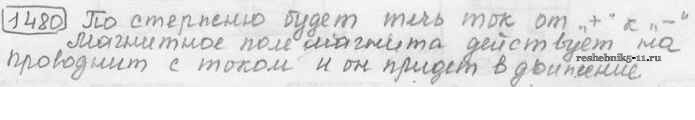 1480 По стержню будет течь ток от „+" к „-"
Магнитное поле магнита действует на
проводник с током и он придет в движение
reshebnik-11.ru